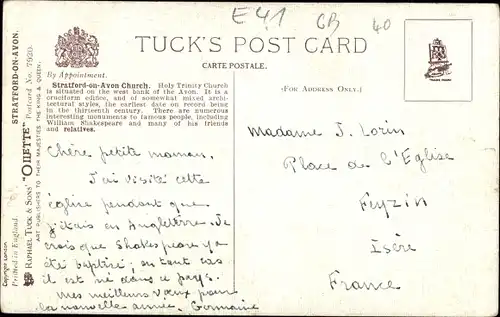 E41 GB 40
TUCK'S POST CARD
CARTE POSTALE.
By Appointment.
(FOR ADDRESS ONLY.)
Stratford-on-Avon Church. Holy Trinity Church
is situated on the west bank of the Avon. It is a
cruciform edifice, and of somewhat mixed archi-
tectural styles, the earliest date on record being
in the thirteenth century. There are numerous
interesting monuments to famous people, including
William Shakespeare and many of his friends
and relatives.
STRATFORD-ON-AVON.
RAPHAEL TUCK & SONS' "OILETTE" Postcard No. 7920.
ART PUBLISHERS TO THEIR MAJESTIES THE KING & QUEEN.
Printed in England.
Copyright London
Chère petite maman,
J'ai visité cette
église pendant que
j'étais en Angleterre. Je
crois que Shakespeare y a
été baptisé; en tout cas
il est né dans ce pays.
Mes meilleurs vœux pour
la nouvelle année. Germaine
Madame J. Lorin
Place de l'Eglise
Feyzin
Isère
France